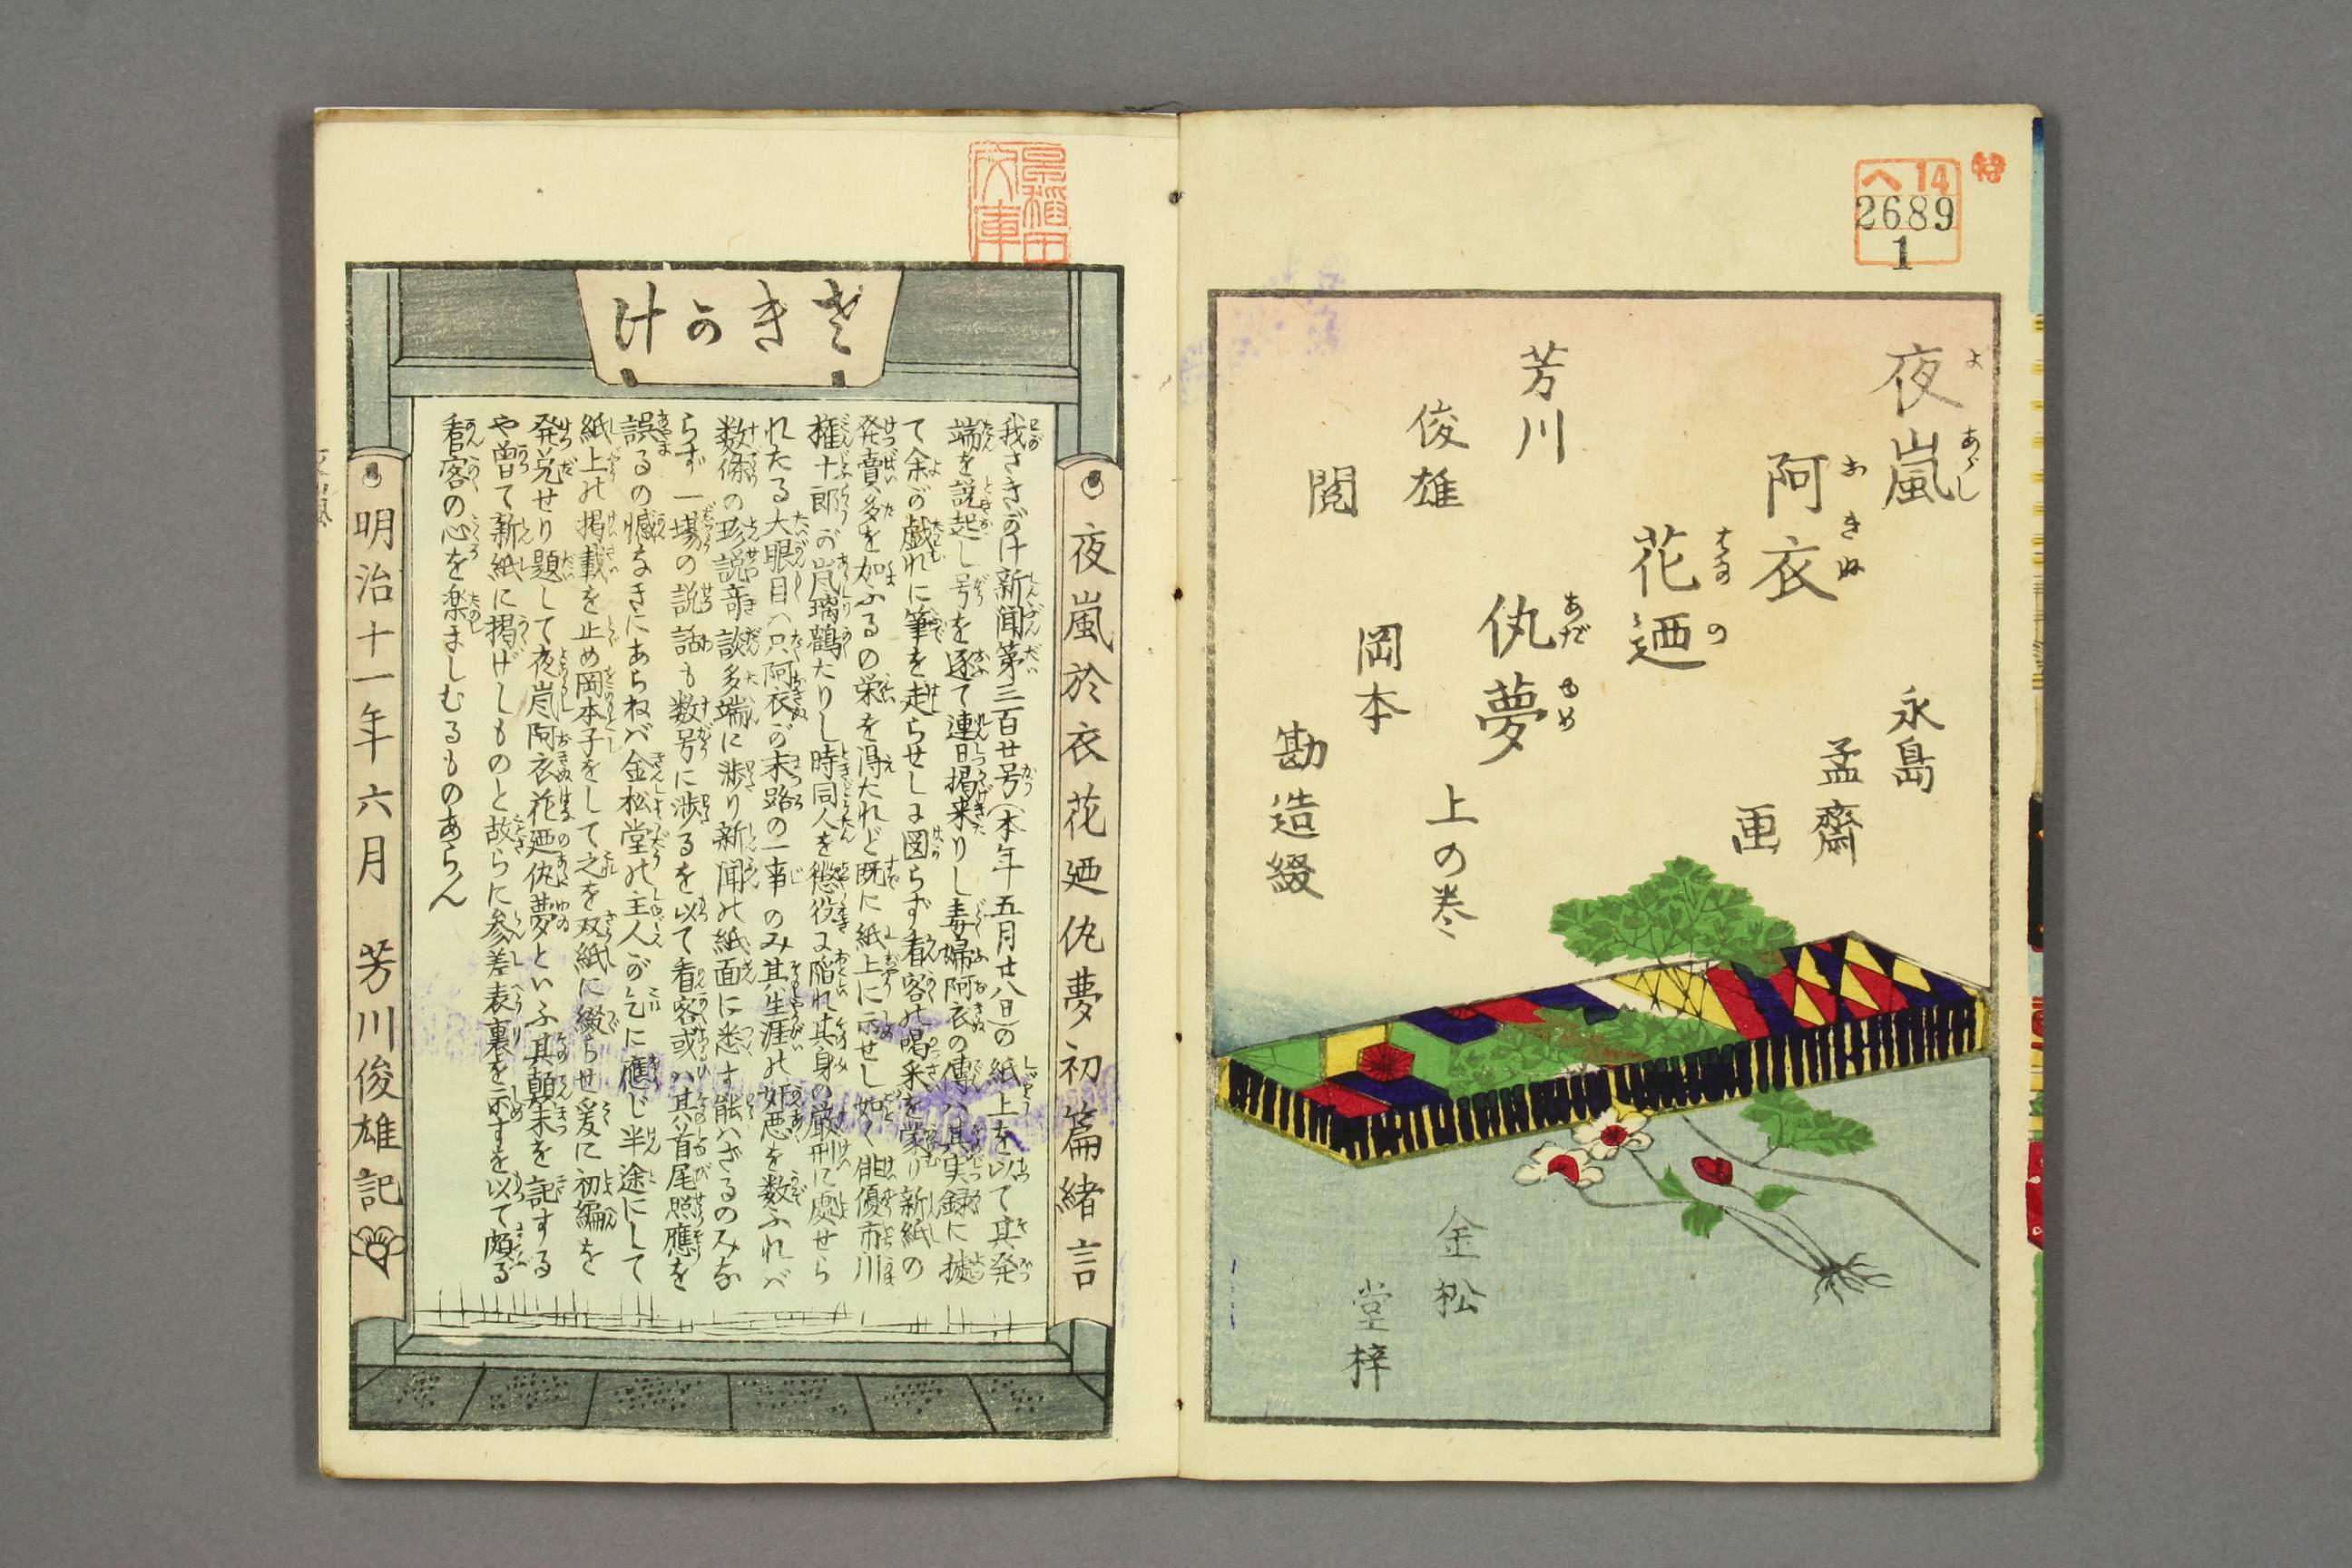 ヘ14
2689
1
特
夜嵐
阿衣
花廼
仇夢
上の巻
芳川
俊雄
閲
岡本
勘造綴
永島
孟齋
画
金松
堂梓
早稲田
文庫
さきがけ
夜嵐於衣花廼仇夢初篇緒言
我さきがけ新聞第三百廿号(本年五月廿八日)の紙上を以て其発
端を説起し号を逐て連日掲来りし毒婦阿衣の傳ハ其実録に據
て余が戯れに筆を走らせしに図らず看客の喝采を蒙り新紙の
発賣多を加ふるの栄を得たれど既に紙上に示せし如く俳優市川
権十郎が嵐璃鶴たりし時同人を懲役に陥れ其身の厳刑に處せら
れたる大眼目ハ只阿衣が末路の一事のみ其生涯の奸悪を数ふれバ
数條の珍説竒談多端に渉り新聞の紙面に悉す能ハざるのみな
らず一場の説話も数号に渉るを以て看客或ハ其首尾照應を
誤るの憾なきにあらねバ金松堂の主人が乞に應じ半途にして
紙上の掲載を止め岡本子をして之を双紙に綴らせ爰に初編を
発兌せり題して夜嵐阿衣花廼仇夢といふ其顛末を記する
や曽て新紙に掲げしものと故らに参差表裏を示すを以て頗る
看客の心を楽ましむるものあらん
明治十一年六月　芳川俊雄記